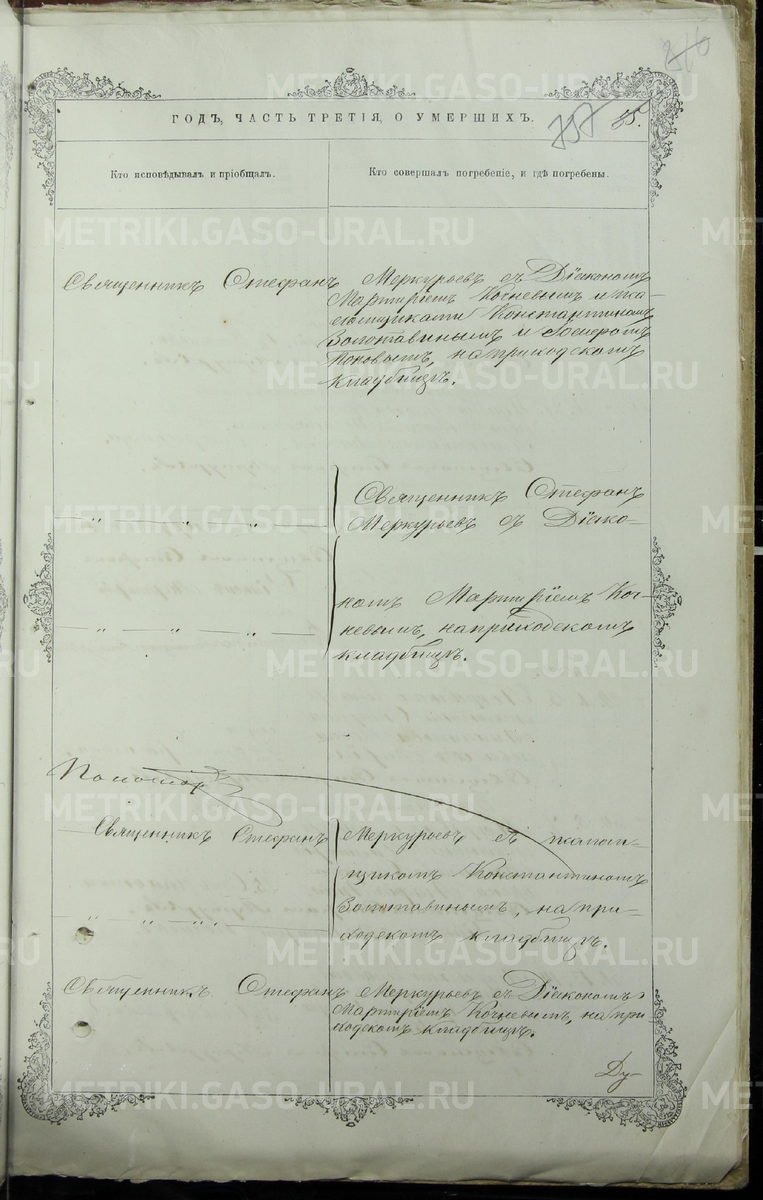 316
ГОДЪ, ЧАСТЬ ТРЕТІЯ, О УМЕРШИХЪ.
757
85.
Кто исповѣдывалъ и пріобщалъ.
Кто совершалъ погребеніе, и гдѣ погребены.
Священникъ Стефанъ Меркурьевъ съ Дїакономъ
Мартирїемъ Кочневымъ и пса-
ломщиками Константиномъ
Золотавинымъ и
Поповымъ, на приходскомъ
кладбищѣ.
Священникъ Стефанъ
— „ — „ — „ — Меркурьевъ съ Дїако-
номъ Мартирїемъ Коч-
— „ — „ — „ — невымъ, на приходскомъ
кладбищѣ.
Священникъ Стефанъ Меркурьевъ съ псалом-
щикомъ Константиномъ
Золотавинымъ, на при-
„ „ — „ — ходскомъ кладбищѣ.
Священникъ Стефанъ Меркурьевъ съ Дїакономъ
Мартирїемъ Кочневымъ, на при
ходскомъ кладбищѣ.
Ду-
METRIKI.GASO-URAL.RU